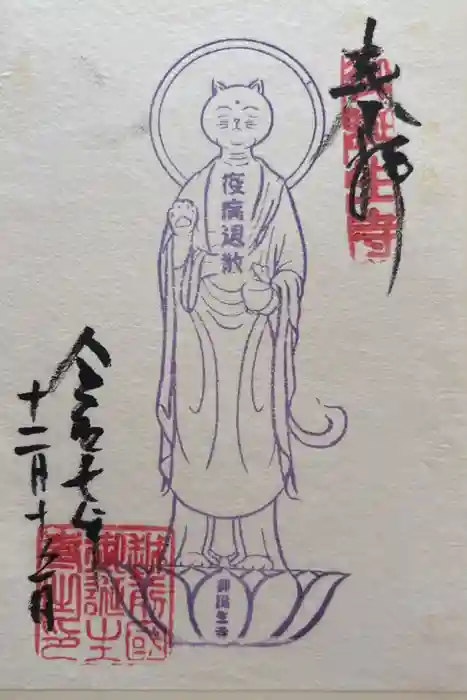 奉拝
御誕生寺
疫病退散
御誕生寺
令和七年
十二月十三日
越前國
御誕生
寺之印